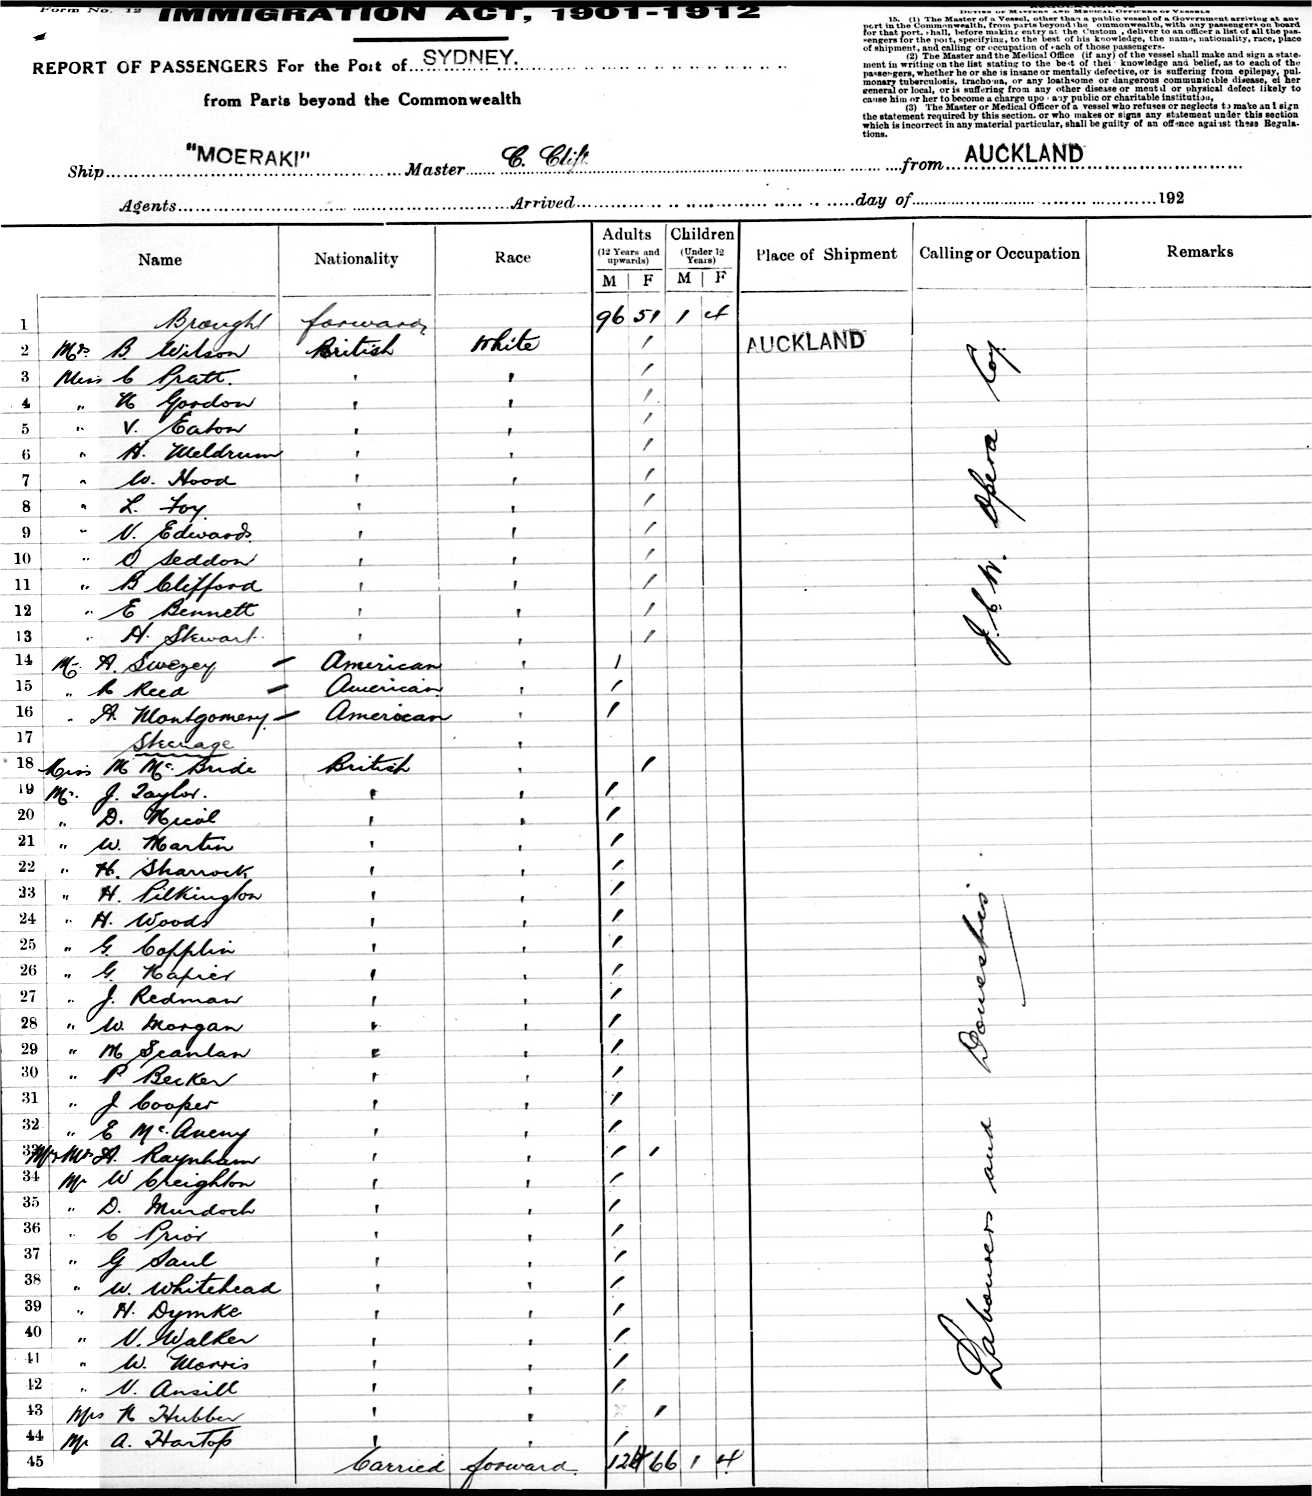 Form No. 12
IMMIGRATION ACT, 1901-1912
REPORT OF PASSENGERS For the Port of SYDNEY.
from Parts beyond the Commonwealth
DUTIES OF MASTERS AND MEDICAL OFFICERS OF VESSELS
15. (1) The Master of a Vessel, other than a public vessel of a Government arriving at any
port in the Commonwealth, from parts beyond the ommonwealth, with any passengers on board
for that port, shall, before making entry at the Custom , deliver to an officer a list of all the pas-
sengers for the post, specifying, to the best of his knowledge, the name, nationality, race, place
of shipment, and calling or occupation of each of those passengers.
(2) The Master and the Medical Office (if any) of the vessel shall make and sign a state-
ment in writing on the list stating to the best of thei knowledge and belief, as to each of the
passengers, whether he or she is insane or mentally defective, or is suffering from epilepsy, pul-
monary tuberculosis, trachoma, or any loathsome or dangerous communicable disease, ei her
general or local, or is suffering from any other disease or mental or physical defect likely to
cause him or her to become a charge upo any public or charitable institution,
(3) The Master or Medical Officer of a vessel who refuses or neglects to make and sign
the statement required by this section, or who makes or signs any statement under this section
which is incorrect in any material particular, shall be guilty of an offence against these Regula-
tions.
Ship "MOERAKI" Master C. Clift from AUCKLAND
Agents Arrived day of 192
Name Nationality Race Adults (12 Years and upwards) M F Children (Under 12 Years) M F Place of Shipment Calling or Occupation Remarks
1 Brought forward 96 51 1 4
2 Mrs. B Wilson British White ' AUCKLAND
3 Miss C Pratt. ' ' '
4 " N Gordon ' ' '
5 " V. Eaton ' ' '
6 " H. Meldrum ' ' '
7 " W. Hood ' ' '
8 " L. Foy ' ' '
9 " V. Edwards ' ' '
10 " O Seddon ' ' '
11 " B Clifford ' ' '
12 " E Bennett ' ' '
13 " H. Stewart ' ' '
J. C. W. Opera Coy.
14 Mr. A. Swezey - American ' '
15 " Reed - American ' '
16 " A. Montgomery - American ' '
17 Steerage '
18 Miss M McBride British ' '
19 Mr. J. Taylor. ' ' '
20 " D. Nicol ' ' '
21 " W. Martin ' ' '
22 " H. Sharrock ' ' '
23 " H. Pilkington ' ' '
24 " H. Woods ' ' '
25 " G. Copplin ' ' '
26 " G. Napier ' ' '
27 " J. Redman ' ' '
28 " W. Morgan ' ' '
29 " M Scanlan ' ' '
30 " P Becker ' ' '
31 " J Cooper ' ' '
32 " E McAneny ' ' '
33 Mr & Mrs A. Raynham ' ' ' '
34 Mr W Creighton ' ' '
35 " D. Murdoch ' ' '
36 " C Prior ' ' '
37 " G Saul ' ' '
38 " W. Whitehead ' ' '
39 " H. Dymke ' ' '
40 " V. Walker ' ' '
41 " W. Morris ' ' '
42 " V. Ansill ' ' '
43 Mrs N Hubber ' ' '
44 Mr A. Hartop ' ' '
Labourers and Domestics
45 Carried forward 124 66 1 4